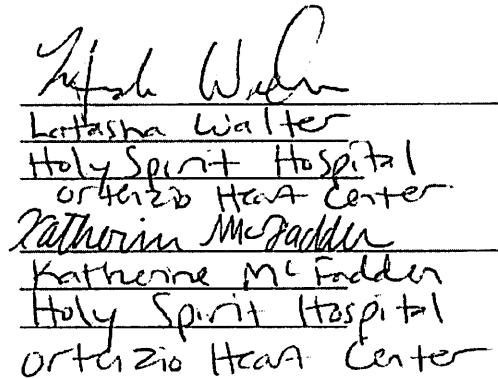 Latasha Walter
Latasha Walter
Holy Spirit Hospital
Ortenzio Heart Center
Katherine McFadden
Katherine McFadden
Holy Spirit Hospital
Ortenzio Heart Center